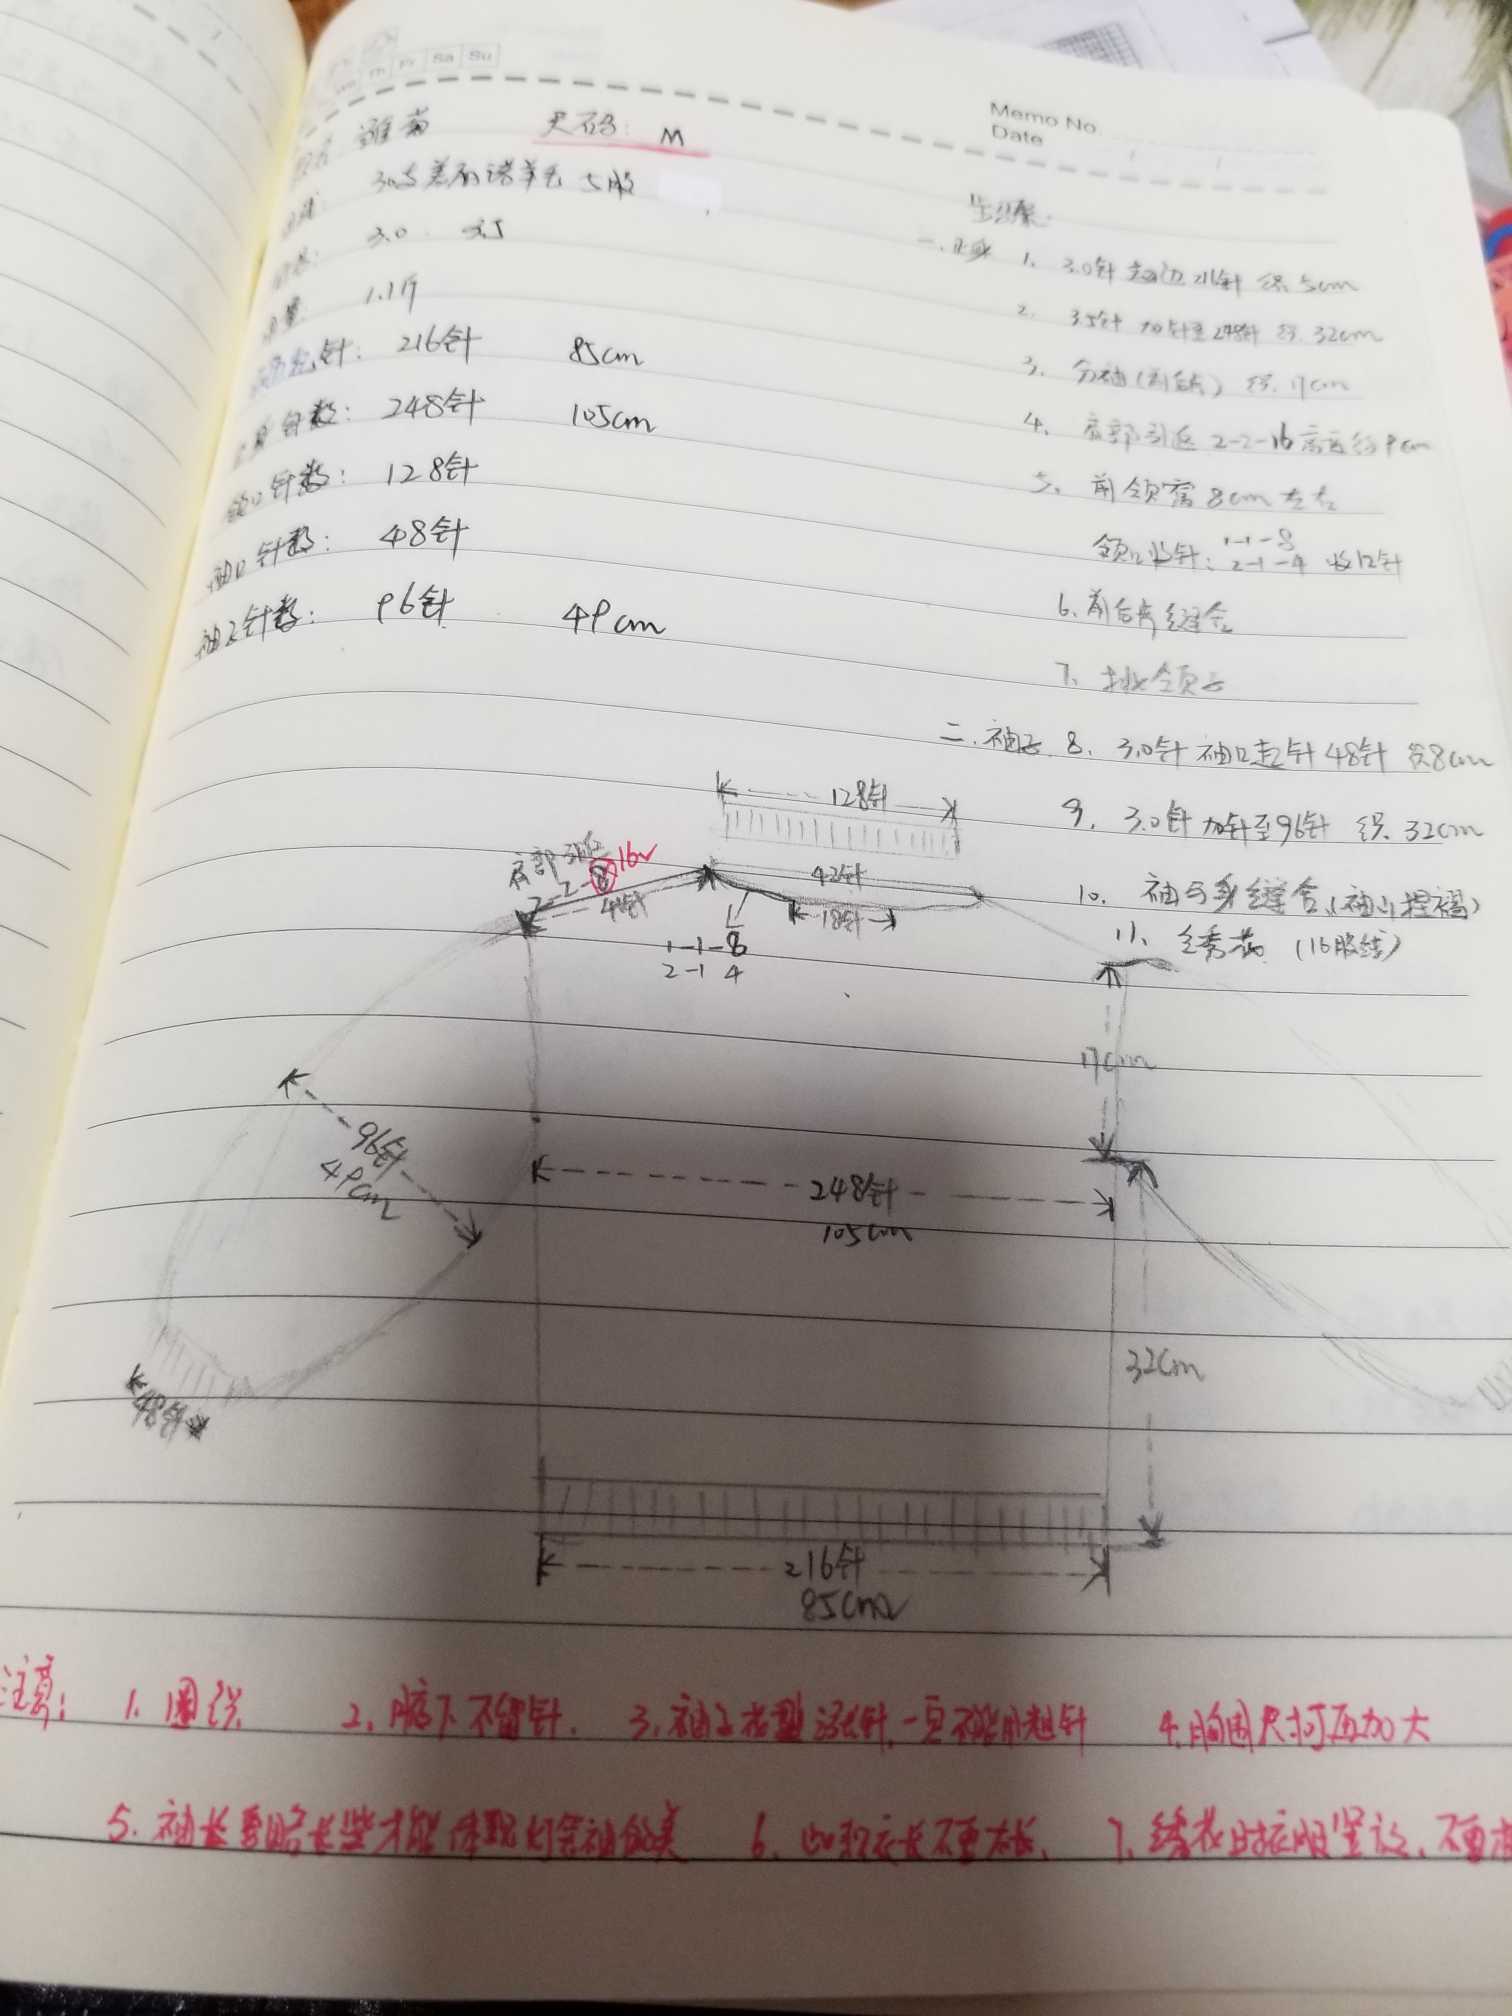 Th Fr Sa Su
Memo No.
Date
雏菊 尺码: M
30支美丽诺羊毛 七股
3.0 3.5
1.1斤
针: 216针 85cm
针数: 248针 105cm
领口针数: 128针
袖口针数: 48针
袖子针数: 96针 49cm
步骤:
一、正身 1、 3.0针 起边 216针 织 5cm
2、 3.5针 加针至248针 织 32cm
3、 分袖(前后片) 织 17cm
4、 肩部引返 2-2-16
5、 前领窝 8cm 左右
领口收针: 1-1-8
2-1-4 收12针
6、前后片缝合
7、 挑领子
二、袖子 8、 3.0针 袖口起针 48针 织8cm
9、 3.0针 加针至96针 织 32cm
10、 袖与身缝合、(袖山捏褶)
11、 绣花 (16股线)
128针
肩部引返
2-2-8 16
42针
18针
1-1-8
2-1 4
17cm
96针
49cm
248针
105cm
32cm
48针
216针
85cm
注意: 1. 圈织 2. 腋下不留针. 3. 袖子 4. 胸围尺寸可再加大
5. 袖长要略长些才能体现灯笼袖的美 6. 衣长不要太长. 7. 绣花时衣服竖放、不要